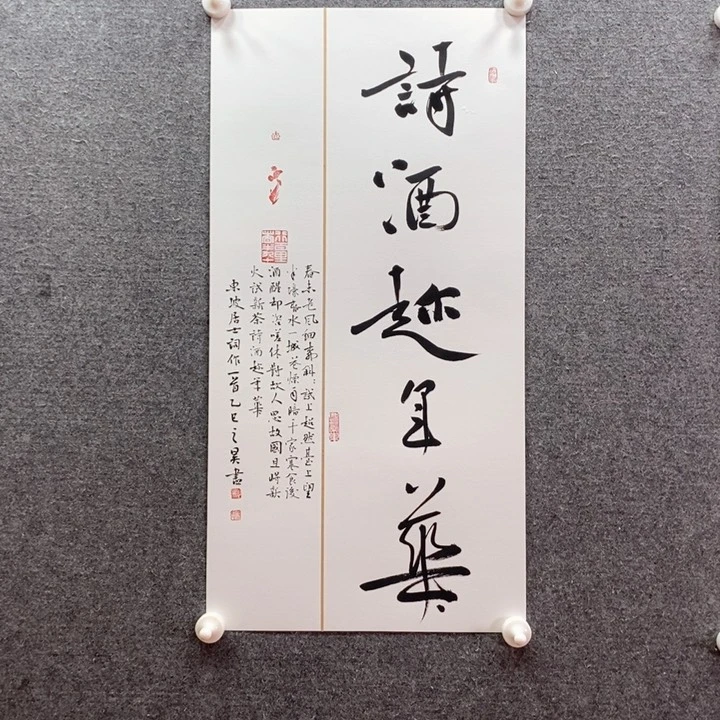 詩酒趂年華
春未老風細柳斜〻試上超然臺上望
半壕春水一城花煙雨暗千家寒食後
酒醒却咨嗟休對故人思故國且將新
火試新茶詩酒趂年華
東坡居士詞作一首乙巳之昊書